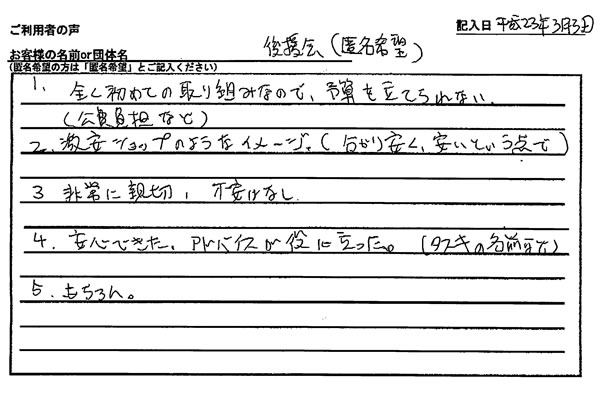 ご利用者の声
記入日 平成23年3月3日
お客様の名前or団体名 後援会(匿名希望)
(匿名希望の方は「匿名希望」とご記入ください)
1. 全く初めての取り組みなので、予算も立てられない.
(公費負担など)
2. 激安ショップのようなイメージ。(分かり安く、安いという点で)
3 非常に親切, 不安はなし.
4. 安心できた。アドバイスが役に立った。(タスキの名前など)
5. もちろん。